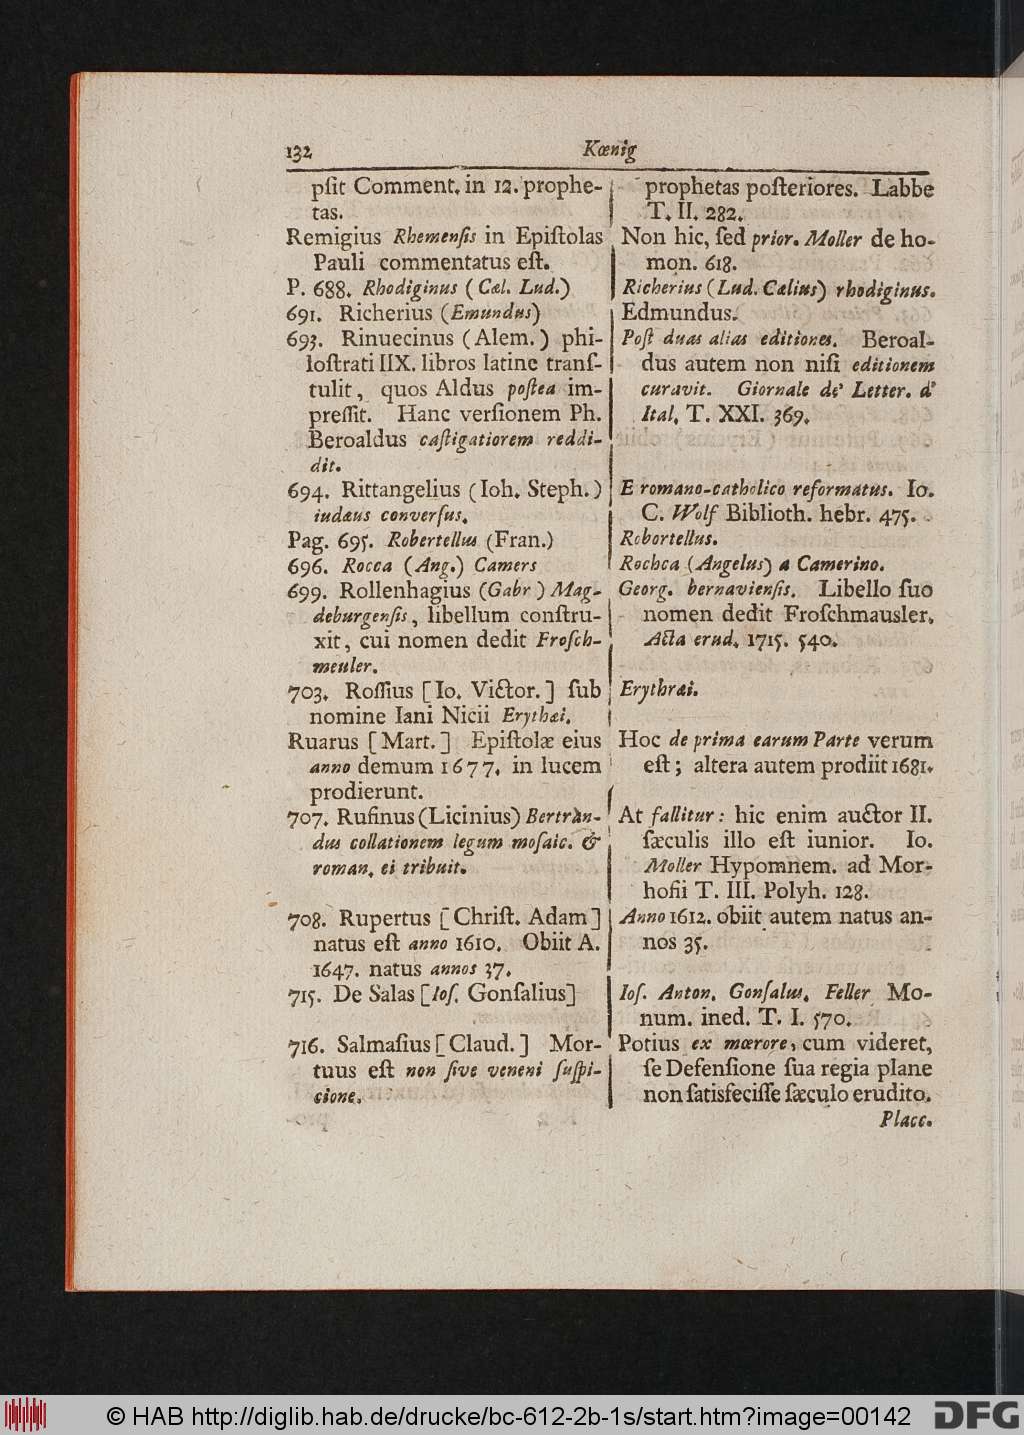 132
Kœnig
pſit Comment. in 12. prophe-
tas.
Remigius Rhemenſis in Epiſtolas
Pauli commentatus eſt.
P. 688. Rhodiginus (Cæl. Lud.)
691. Richerius (Emundus)
693. Rinuecinus (Alem.) phi-
loſtrati IIX. libros latine tranſ-
tulit, quos Aldus poſtea im-
preſſit. Hanc verſionem Ph.
Beroaldus caſtigatiorem reddi-
dit.
694. Rittangelius (Ioh. Steph.)
iudæus converſus.
Pag. 695. Robertellus (Fran.)
696. Rocca (Ang.) Camers
699. Rollenhagius (Gabr) Mag-
deburgenſis, libellum conſtru-
xit, cui nomen dedit Froſch-
meuler.
703. Roſſius [Io. Victor.] ſub
nomine Iani Nicii Erythæi.
Ruarus [Mart.] Epiſtolæ eius
anno demum 1677. in lucem
prodierunt.
707. Rufinus (Licinius) Bertran-
dus collationem legum moſaic. &
roman. ei tribuit.
708. Rupertus [Chriſt. Adam]
natus eſt anno 1610. Obiit A.
1647. natus annos 37.
715. De Salas [Ioſ. Gonſalius]
716. Salmaſius [Claud.] Mor-
tuus eſt non ſive veneni ſuſpi-
cione.
prophetas poſteriores. Labbe
T. II. 282.
Non hic, ſed prior. Moller de ho-
mon. 618.
Richerius (Lud. Cælius) rhodiginus.
Edmundus.
Poſt duas alias editiones. Beroal-
dus autem non niſi editionem
curavit. Giornale de' Letter. d'
Ital. T. XXI. 369.
E romano-catholico reformatus. Io.
C. Wolf Biblioth. hebr. 475.
Robortellus.
Rochca (Angelus) a Camerino.
Georg. bernavienſis. Libello ſuo
nomen dedit Froſchmausler.
Acta erud. 1715. 540.
Erythræi.
Hoc de prima earum Parte verum
eſt; altera autem prodiit 1681.
At fallitur: hic enim auctor II.
ſæculis illo eſt iunior. Io.
Moller Hypomnem. ad Mor-
hofii T. III. Polyh. 128.
Anno 1612. obiit autem natus an-
nos 35.
Ioſ. Anton. Gonſalus. Feller Mo-
num. ined. T. I. 570.
Potius ex mœrore, cum videret,
ſe Defenſione ſua regia plane
non ſatisfeciſſe ſæculo erudito.
Placc.
© HAB http://diglib.hab.de/drucke/bc-612-2b-1s/start.htm?image=00142
DFG